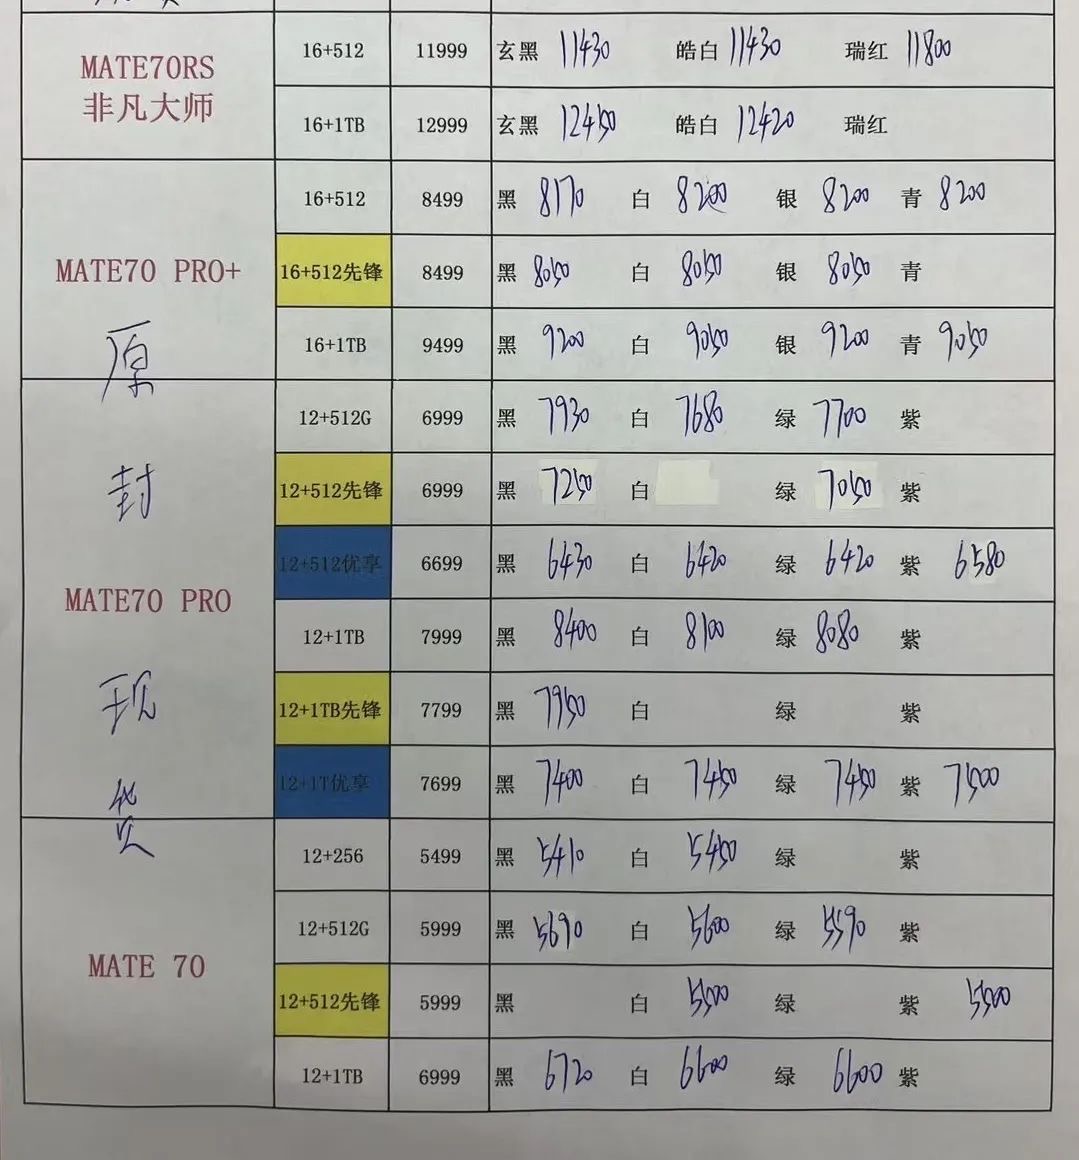 MATE70RS
非凡大师
16+512 11999 玄黑 11430 皓白 11430 瑞红 11800
16+1TB 12999 玄黑 12450 皓白 12420 瑞红
MATE70 PRO+
16+512 8499 黑 8170 白 8200 银 8200 青 8200
16+512先锋 8499 黑 8050 白 8050 银 8050 青
16+1TB 9499 黑 9200 白 9050 银 9200 青 9050
原封现货
MATE70 PRO
12+512G 6999 黑 7930 白 7680 绿 7700 紫
12+512先锋 6999 黑 7250 白 绿 7050 紫
12+512优享 6699 黑 6430 白 6420 绿 6420 紫 6580
12+1TB 7999 黑 8400 白 8100 绿 8080 紫
12+1TB先锋 7799 黑 7950 白 绿 紫
12+1T优享 7699 黑 7400 白 7450 绿 7450 紫 7500
MATE 70
12+256 5499 黑 5410 白 5450 绿 紫
12+512G 5999 黑 5690 白 5600 绿 5590 紫
12+512先锋 5999 黑 白 5500 绿 紫 5500
12+1TB 6999 黑 6720 白 6600 绿 6600 紫